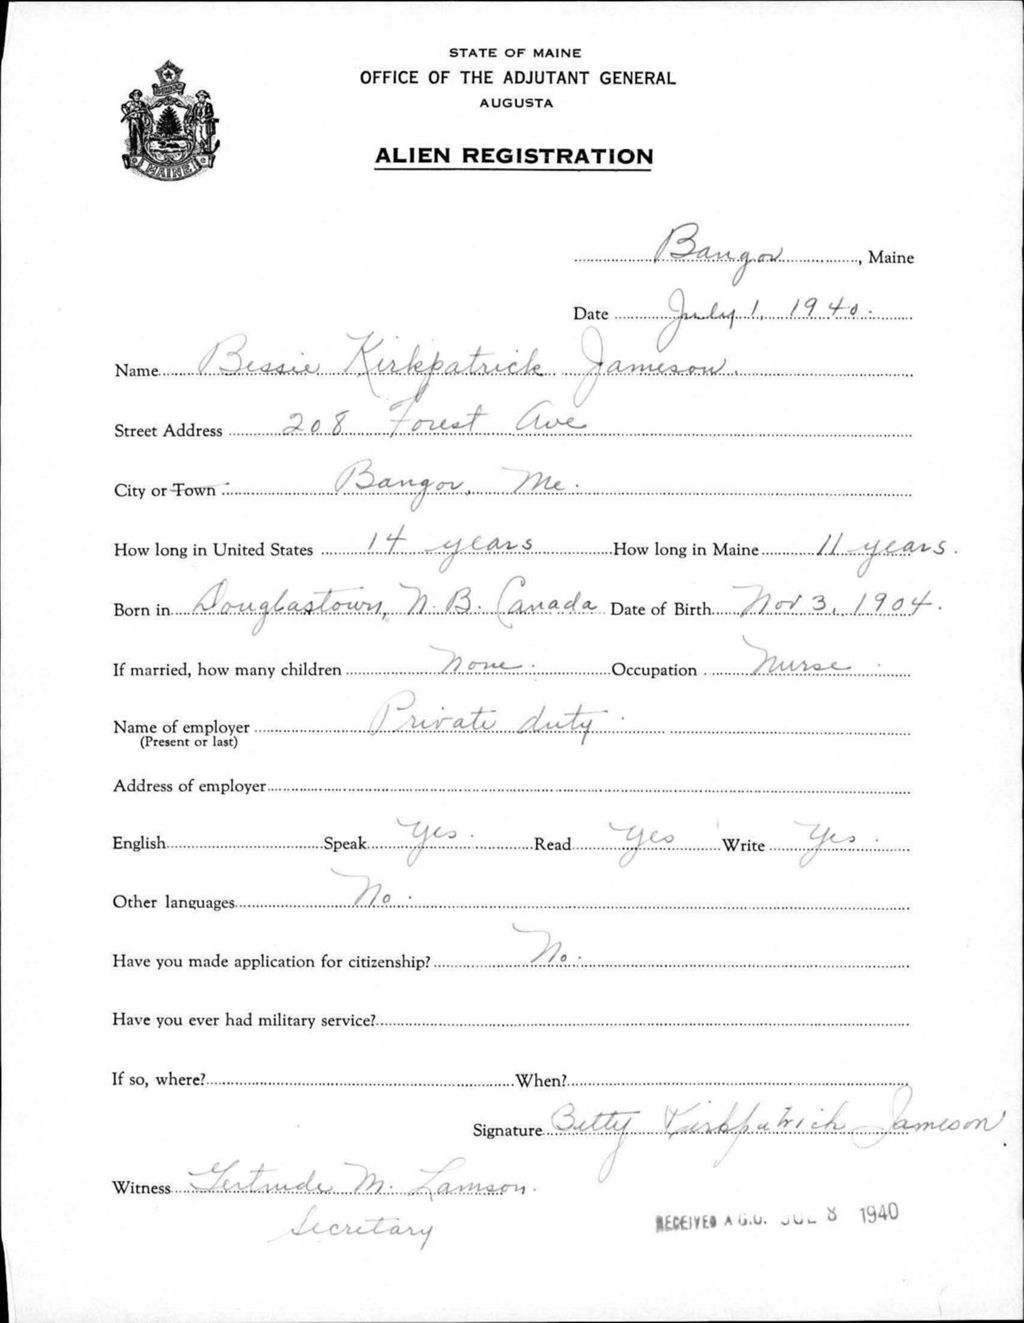 STATE OF MAINE
OFFICE OF THE ADJUTANT GENERAL
AUGUSTA
ALIEN REGISTRATION
MAINE
Bangor, Maine
Date July 1, 1940.
Name Bessie Kirkpatrick Jameson.
Street Address 208 Forest Ave
City or Town Bangor, Me.
How long in United States 14 years How long in Maine 11 years.
Born in Douglastown, N.B. Canada Date of Birth Nov 3, 1904.
If married, how many children None. Occupation Nurse.
Name of employer Private duty.
(Present or last)
Address of employer
English Speak Yes. Read Yes Write Yes.
Other languages No.
Have you made application for citizenship? No.
Have you ever had military service?
If so, where? When?
Signature Betty Kirkpatrick Jameson
Witness Gertrude M. Lamson.
Secretary
RECEIVED A.G.O. JUL 8 1940